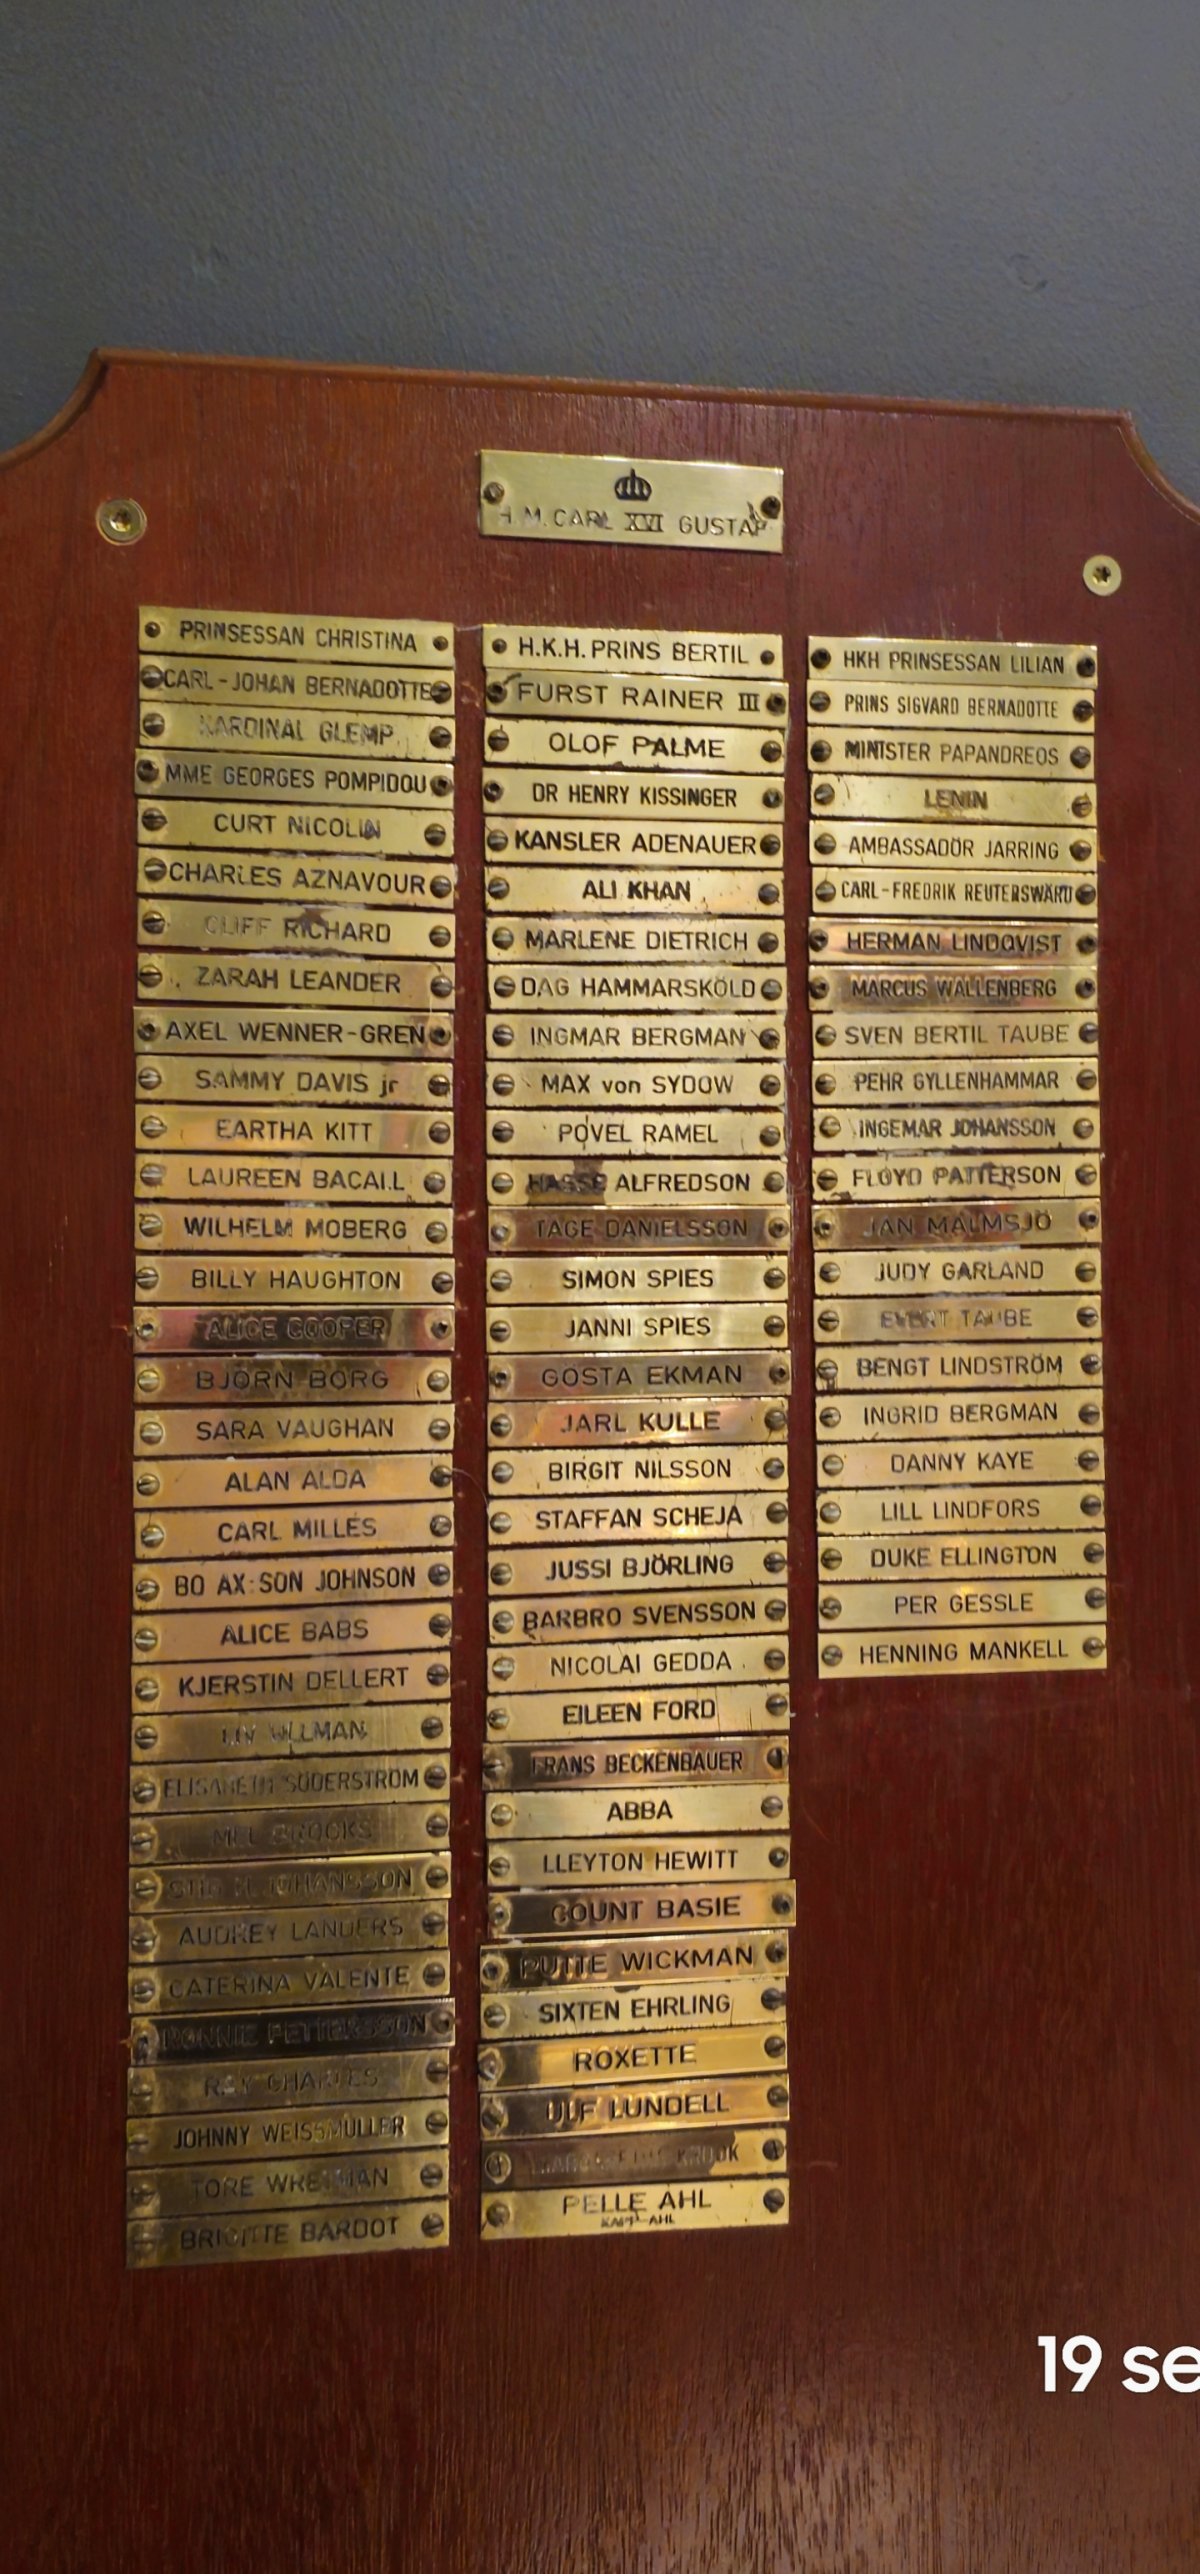 H.M. CARL XVI GUSTAF
PRINSESSAN CHRISTINA
CARL-JOHAN BERNADOTTE
KARDINAL GLEMP
MME GEORGES POMPIDOU
CURT NICOLIN
CHARLES AZNAVOUR
CLIFF RICHARD
ZARAH LEANDER
AXEL WENNER-GREN
SAMMY DAVIS jr
EARTHA KITT
LAUREEN BACALL
WILHELM MOBERG
BILLY HAUGHTON
ALICE COOPER
BJÖRN BORG
SARA VAUGHAN
ALAN ALDA
CARL MILLES
BO AX:SON JOHNSON
ALICE BABS
KJERSTIN DELLERT
LIV ULLMAN
ELISABETH SÖDERSTRÖM
MEL BROOKS
STIG H. JOHANSSON
AUDREY LANDERS
CATERINA VALENTE
RONNIE PETTERSSON
RAY CHARLES
JOHNNY WEISSMULLER
TORE WRETMAN
BRIGITTE BARDOT
H.K.H. PRINS BERTIL
FURST RAINER III
OLOF PALME
DR HENRY KISSINGER
KANSLER ADENAUER
ALI KHAN
MARLENE DIETRICH
DAG HAMMARSKÖLD
INGMAR BERGMAN
MAX von SYDOW
POVEL RAMEL
HASSE ALFREDSON
TAGE DANIELSSON
SIMON SPIES
JANNI SPIES
GÖSTA EKMAN
JARL KULLE
BIRGIT NILSSON
STAFFAN SCHEJA
JUSSI BJÖRLING
BARBRO SVENSSON
NICOLAI GEDDA
EILEEN FORD
FRANS BECKENBAUER
ABBA
LLEYTON HEWITT
COUNT BASIE
PUTTE WICKMAN
SIXTEN EHRLING
ROXETTE
ULF LUNDELL
KROOK
PELLE AHL
KAPP-AHL
HKH PRINSESSAN LILIAN
PRINS SIGVARD BERNADOTTE
MINISTER PAPANDREOS
LENIN
AMBASSADÖR JARRING
CARL-FREDRIK REUTERSWÄRD
HERMAN LINDQVIST
MARCUS WALLENBERG
SVEN BERTIL TAUBE
PEHR GYLLENHAMMAR
INGEMAR JOHANSSON
FLOYD PATTERSON
JAN MALMSJÖ
JUDY GARLAND
EVERT TAUBE
BENGT LINDSTRÖM
INGRID BERGMAN
DANNY KAYE
LILL LINDFORS
DUKE ELLINGTON
PER GESSLE
HENNING MANKELL
19 se